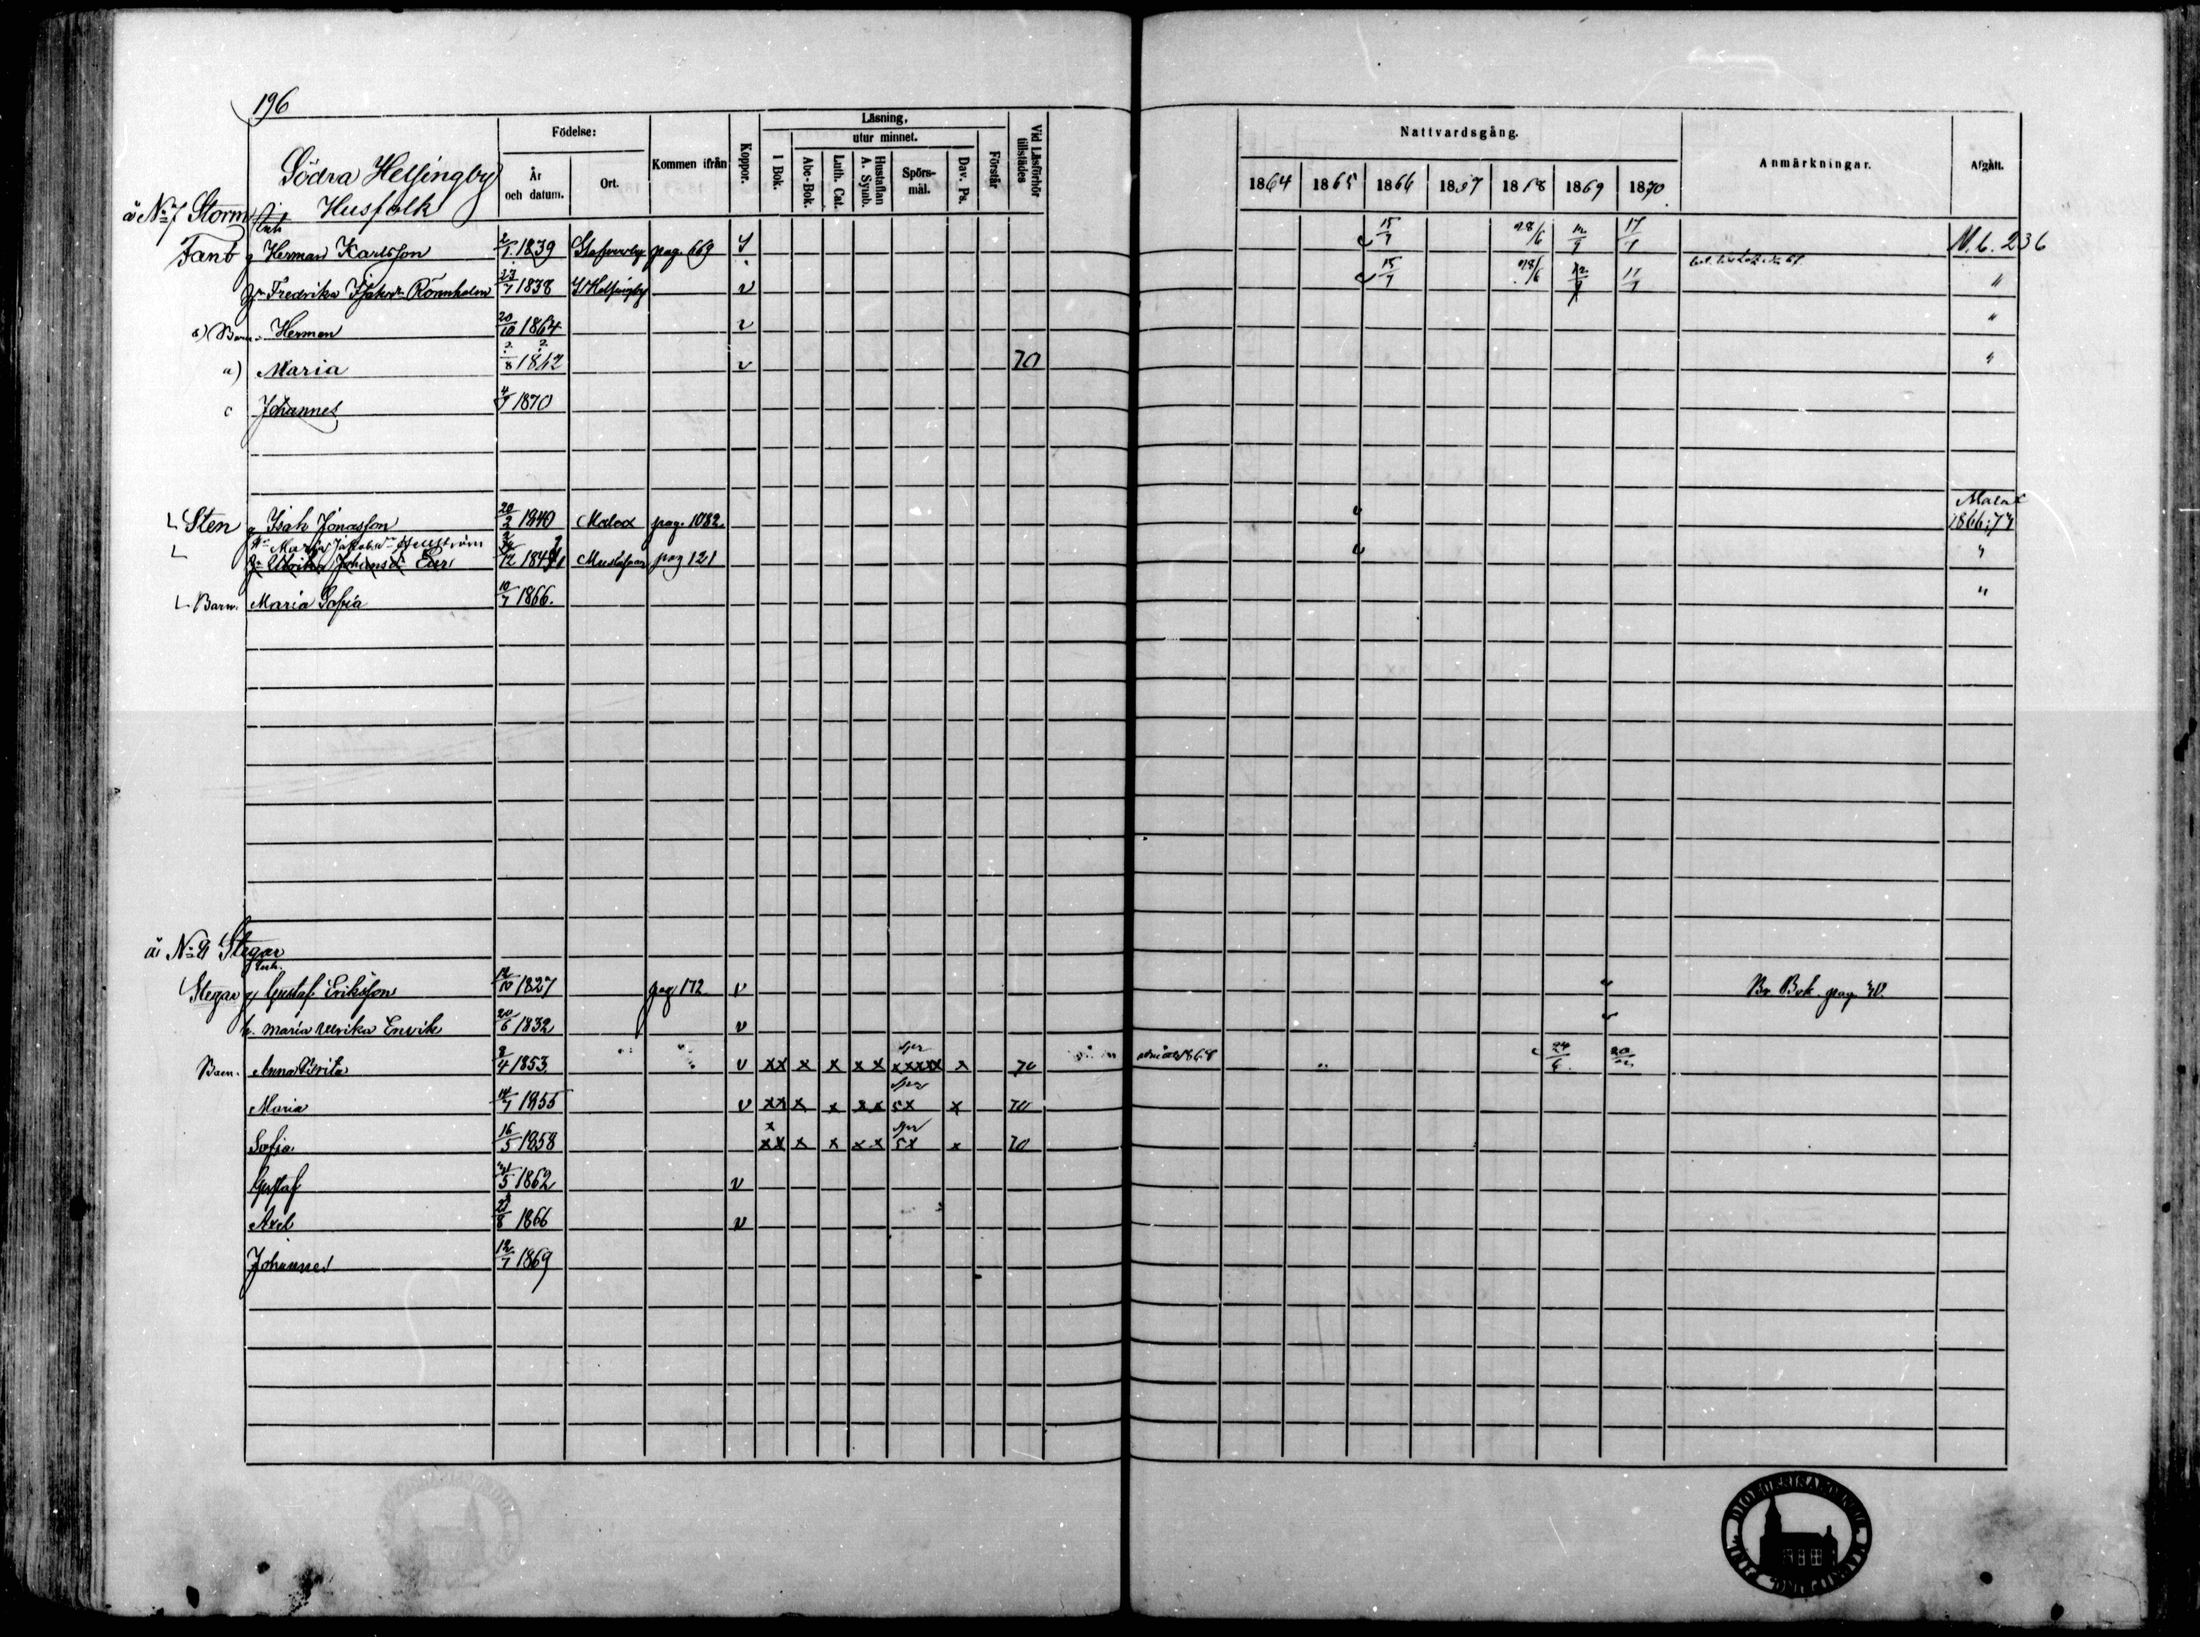 196
Södra Helsingby
Husfolk
Födelse:
År och datum.
Ort.
Kommen ifrån
Koppor.
Läsning,
utur minnet.
I Bok.
Abc-Bok.
Luth. Cat.
Hustaflan A. Symb.
Spörs-mål.
Dav. Ps.
Förstår
Vid Läsförhör tillstädes
Nattvardsgång.
1864 1865 1866 1867 1868 1869 1870
Anmärkningar.
Afgått.
å No 7 Storm
Fant Herman Karlsson 2/1 1839 pag. 669 15/7 28/6 12/9 17/7 N. b. 236
Fredrika Rönnholm 27/7 1838 S Helsingby v 15/7 28/6 12/9 17/7 "
b) Barn Herman 20/10 1864 v "
a) Maria 2/8 1862 v 70 "
c Johannes 4/7 1870
Sten Isak Jonasson 20/2 1840 Malax pag. 1082 Malax 1866:74
Maria Jakobsdr Hellström
Ulrika Johansdr 12 184 Mustasaari pag 121 "
Barn. Maria Sofia 10/7 1866. "
å No 9 Stegar
Inh.
Stegar Gustaf Eriksson 12/10 1827 pag 172 v Br. Bok. pag. 40.
h. Maria Ulrika Envik 20/6 1832 v
Barn. Anna Brita 2/4 1853 v xx x x x x xxxxx x 70 1868 24/6 20/11
Maria 14/7 1855 v xx x x x x 5x x 70
Sofia 16/5 1858 xx x x x x 5x x 70
Gustaf 21/5 1862 v
Axel 21/8 1866 v
Johannes 12/7 1869